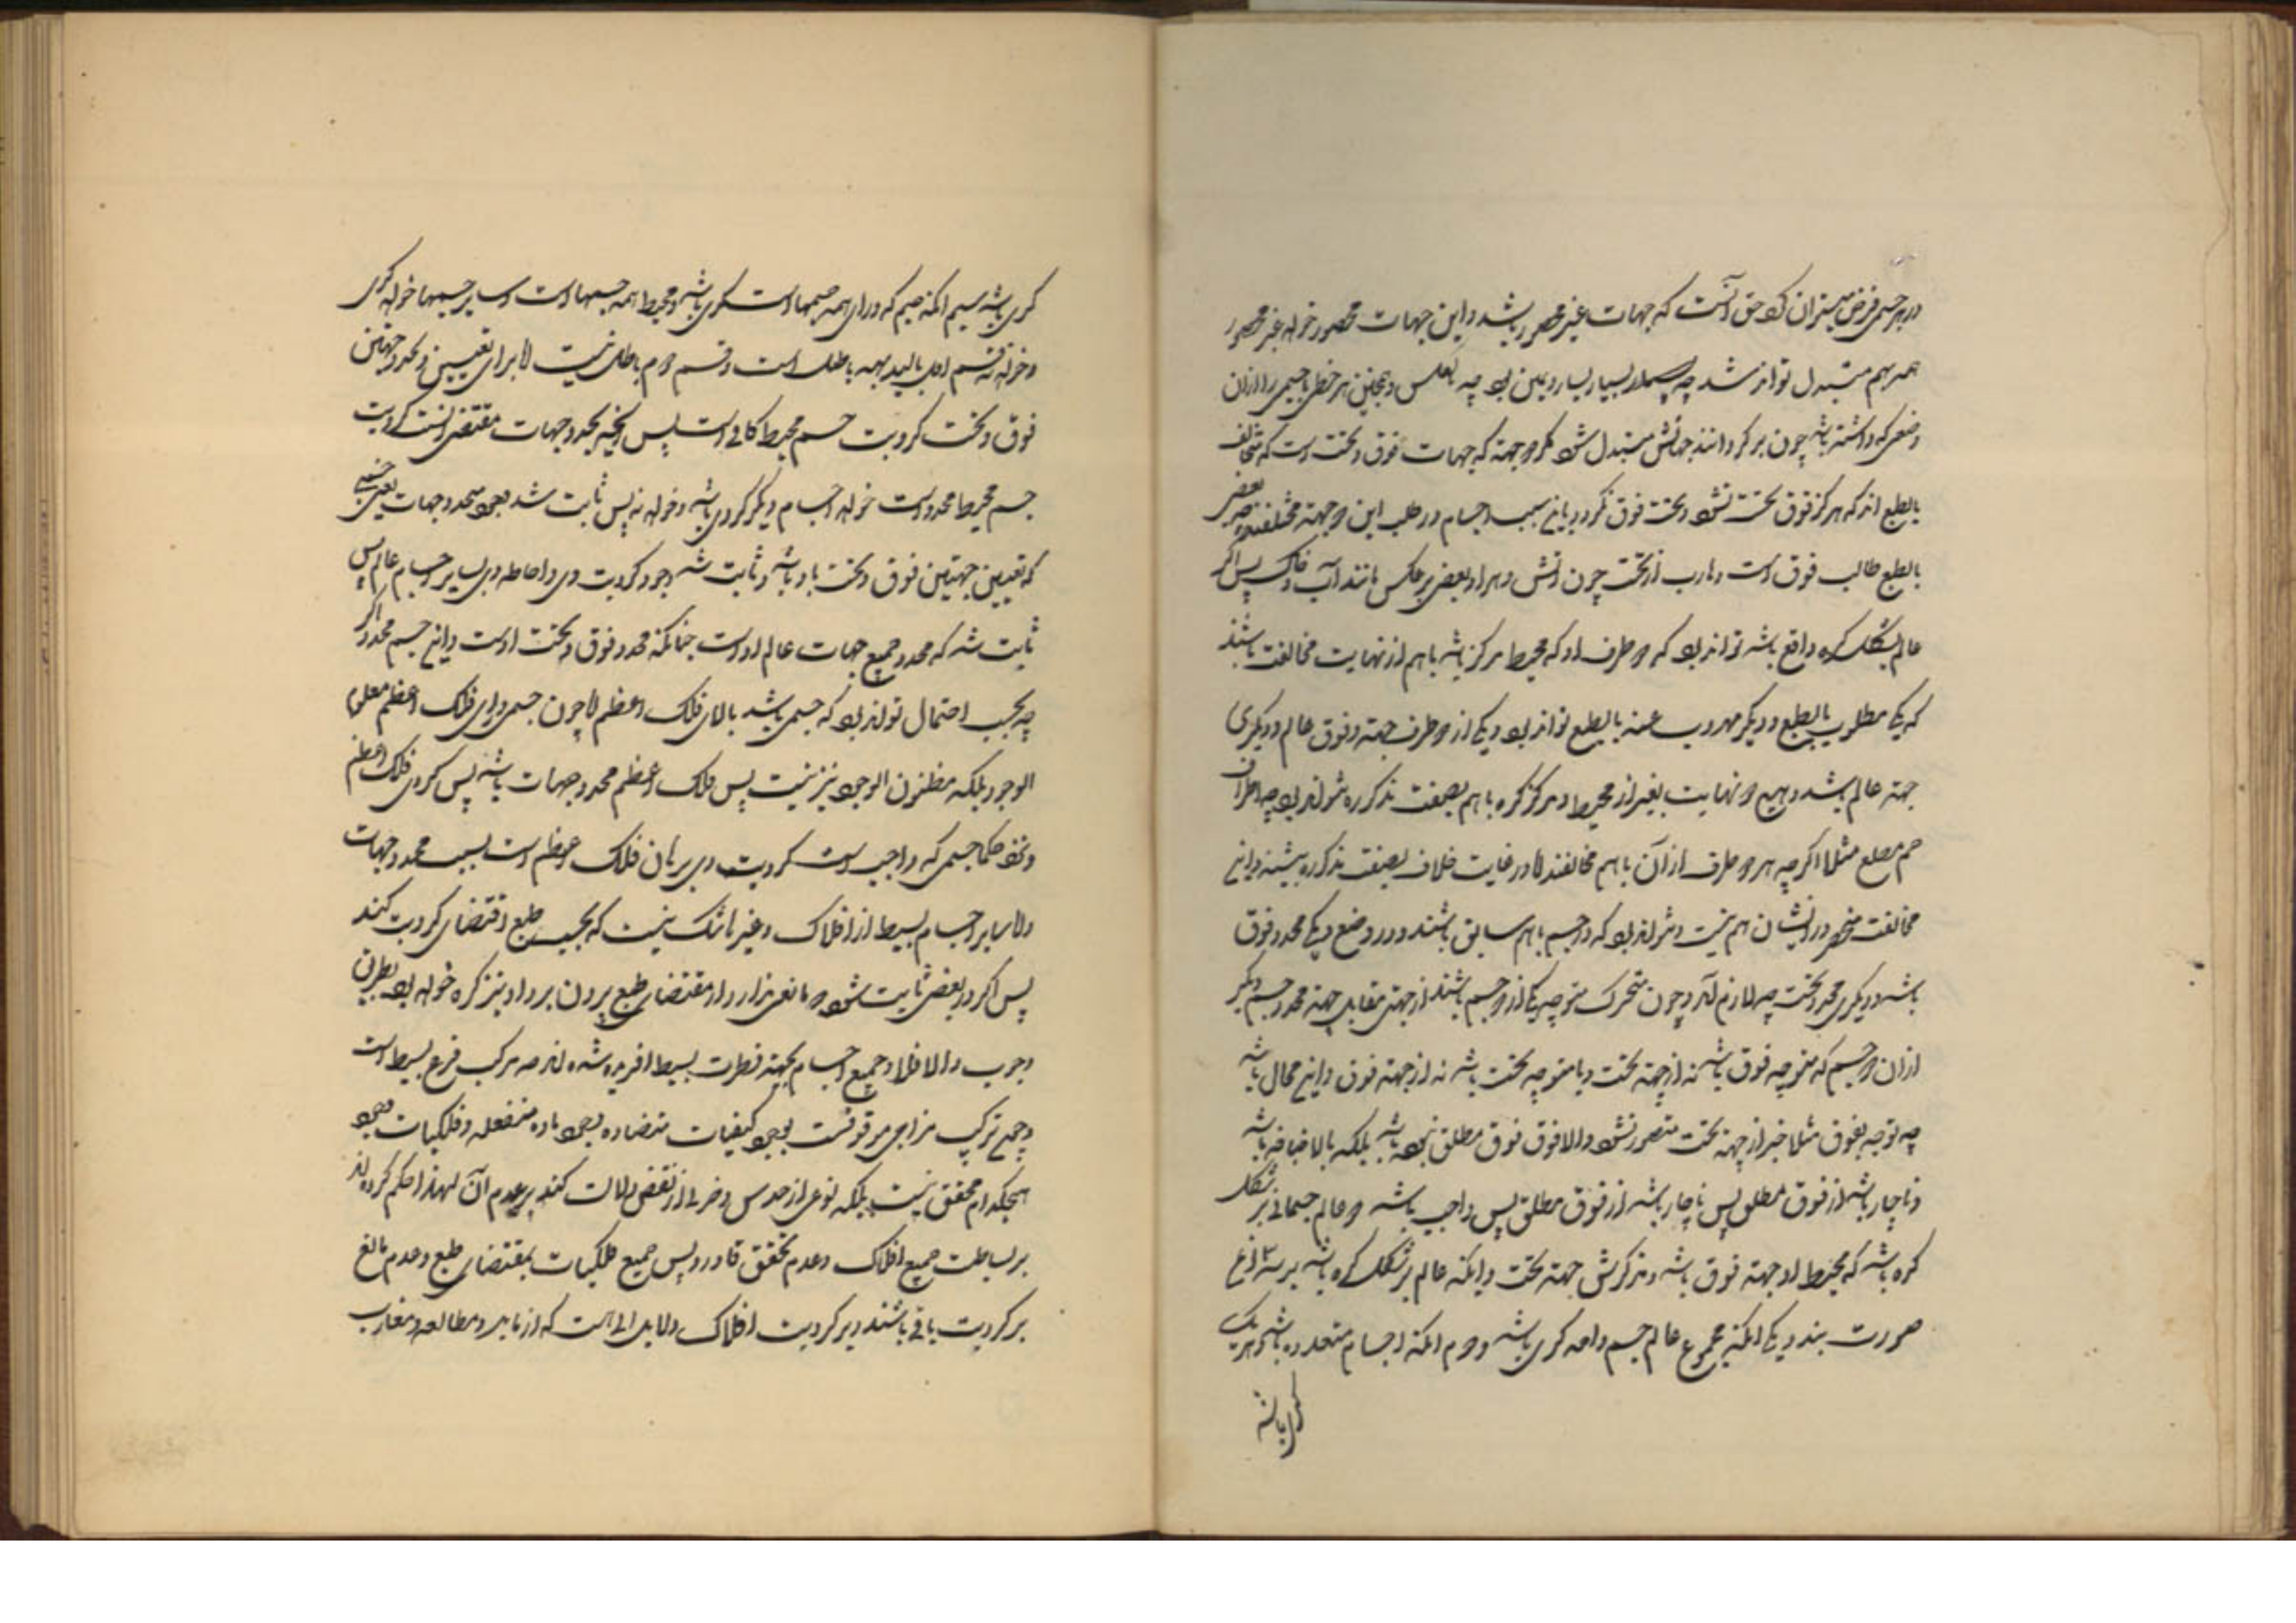 در هر جسمی فرض میتوان کرد حق آنست که جهات غیر محصور باشد و این جهات محصور خواه غیر محصور
همه بهم متبدل تواند شد چه یسار یمین بود چه بعکس و همچنین هر خطی یا جسمی را از آن
وضعی که داشته باشد چون برگردانند جهاتش متبدل شود مگر دو جهته که جهات فوق و تحت است که متخالف
بالطبع اند که هرگز فوق تحت نشود و تحت فوق نگردد باین سبب اجسام در طلب این دو جهته مختلفند بعضی
بالطبع طالب فوق است و هارب از تحت چون آتش و هوا و بعضی برعکس مانند آب و خاک پس اگر
عالم بشکل کره واقع باشد تواند بود که دو طرف او که محیط و مرکز باشد باهم از نهایت مخالفت باشند
که یکی مطلوب بالطبع و دیگر مهروب عنه بالطبع تواند بود و یکی از دو طرف جهته فوق عالم و دیگری
جهته عالم باشد و هیچ دو نهایت بغیر از محیط و مرکز کره باهم بصفت مذکوره نتواند بود چه اطراف
جسم مضلع مثلا اگرچه هر دو طرف از آن باهم مخالفند لا در غایت خلاف بصفت مذکوره بیشند و این
مخالفت منحصر در ایشان هم نیست و نتواند بود که دو جسم باهم سابق باشند و در وضع و یکی محدد فوق
باشد و دیگری محدد تحت چه لازم آید چون متحرک متوجه یکی از دو جسم باشند از جهتی مقابل جهته محدد جسم دیگر
از آن دو جسم که متوجه فوق باشد نه از جهته تحت و یا متوجه تحت باشد نه از جهته فوق و این محال باشد
چه توجه بفوق مثلا جز از جهته تحت متصور نشود والا فوق فوق مطلق نبوده باشد بلکه بالاضافه باشد
و ناچار باشد از فوق مطلق پس ناچار باشد از فوق مطلق پس واجب باشد که عالم جسمانی بر شکل
کره باشد که محیط او جهته فوق باشد و مرکزش جهته تحت و اینکه عالم بر شکل کره باشد بر سه نوع
صورت بندد یکی آنکه مجموع عالم جسم واحد کری باشد و دوم آنکه اجسام متعدده باشد و هر یک
کری باشد
کری باشد سیم آنکه جسمی که ورای همه جسمها است کری باشد و محیط همه جسمها است و سایر جسمها خواه کری
و خواه نه قسم اول بالبدیهه باطل است و قسم دوم باطل نیست لا برای تعیین و تحدد جهتین
فوق و تحت کرویت جسم محیط کافی است پس آنچه تحدد جهات مقتضی آنست کرویت
جسم محیط محدد است خواه اجسام دیگر کروی باشد و خواه نه پس ثابت شد وجود محدد جهات یعنی جسمی
که تعیین جهتین فوق و تحت باو باشد و ثابت شد وجود کرویت وی و احاطه وی بسایر اجسام عالم پس
ثابت شد که محدد جمیع جهات عالم او است چنانکه محدد فوق و تحت او است و این جسم محدد اگر
چه بحسب احتمال تواند بود که جسمی باشد بالای فلک اعظم لا چون جسمی ورای فلک اعظم معلوم
الوجود بلکه مظنون الوجود نیز نیست پس فلک اعظم محدد جهات باشد پس کروی فلک اعظم
و نزد حکما جسمی که واجب است کرویت وی برهان فلک اعظم است بسبب تحدد جهات
و لا سایر اجسام بسیط از افلاک و غیره شک نیست که بحسب طبع اقتضای کرویت کنند
پس اگر در بعضی ثابت شود و مانعی ندارد از مقتضای طبع بردن برد او نیز کره خواهد بود بطریق
وجوب والا فلا و جمیع اجسام بجهته فطرت بسیط آفریده شده اند چه مرکب فرع بسیط است
و جمیع ترکیب مزاجی موقوفست بوجود کیفیات متضاده بوجود ماده منفعله و فلکیات وجود
هیچکدام محقق نیست بلکه نوعی از حدس و خردی از نقض دلالت کند بر عدم آن لهذا حکم کرده اند
بر بساطت جمیع افلاک و عدم تحقق قادر و پس جمیع فلکیات بمقتضای طبع و عدم مانع
بر کرویت باقی باشند و بر کرویت افلاک دلایل انی هست که از تأمل و مطالع و مغارب